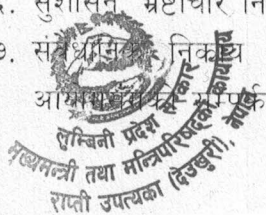 ६. सुशासन, भ्रष्टाचार नि
७. संवैधानिक निकाय
आयोगसँगको सम्पर्क
लुम्बिनी प्रदेश सरकार
मुख्यमन्त्री तथा मन्त्रिपरिषद्को कार्यालय
राप्ती उपत्यका (देउखुरी), नेपाल